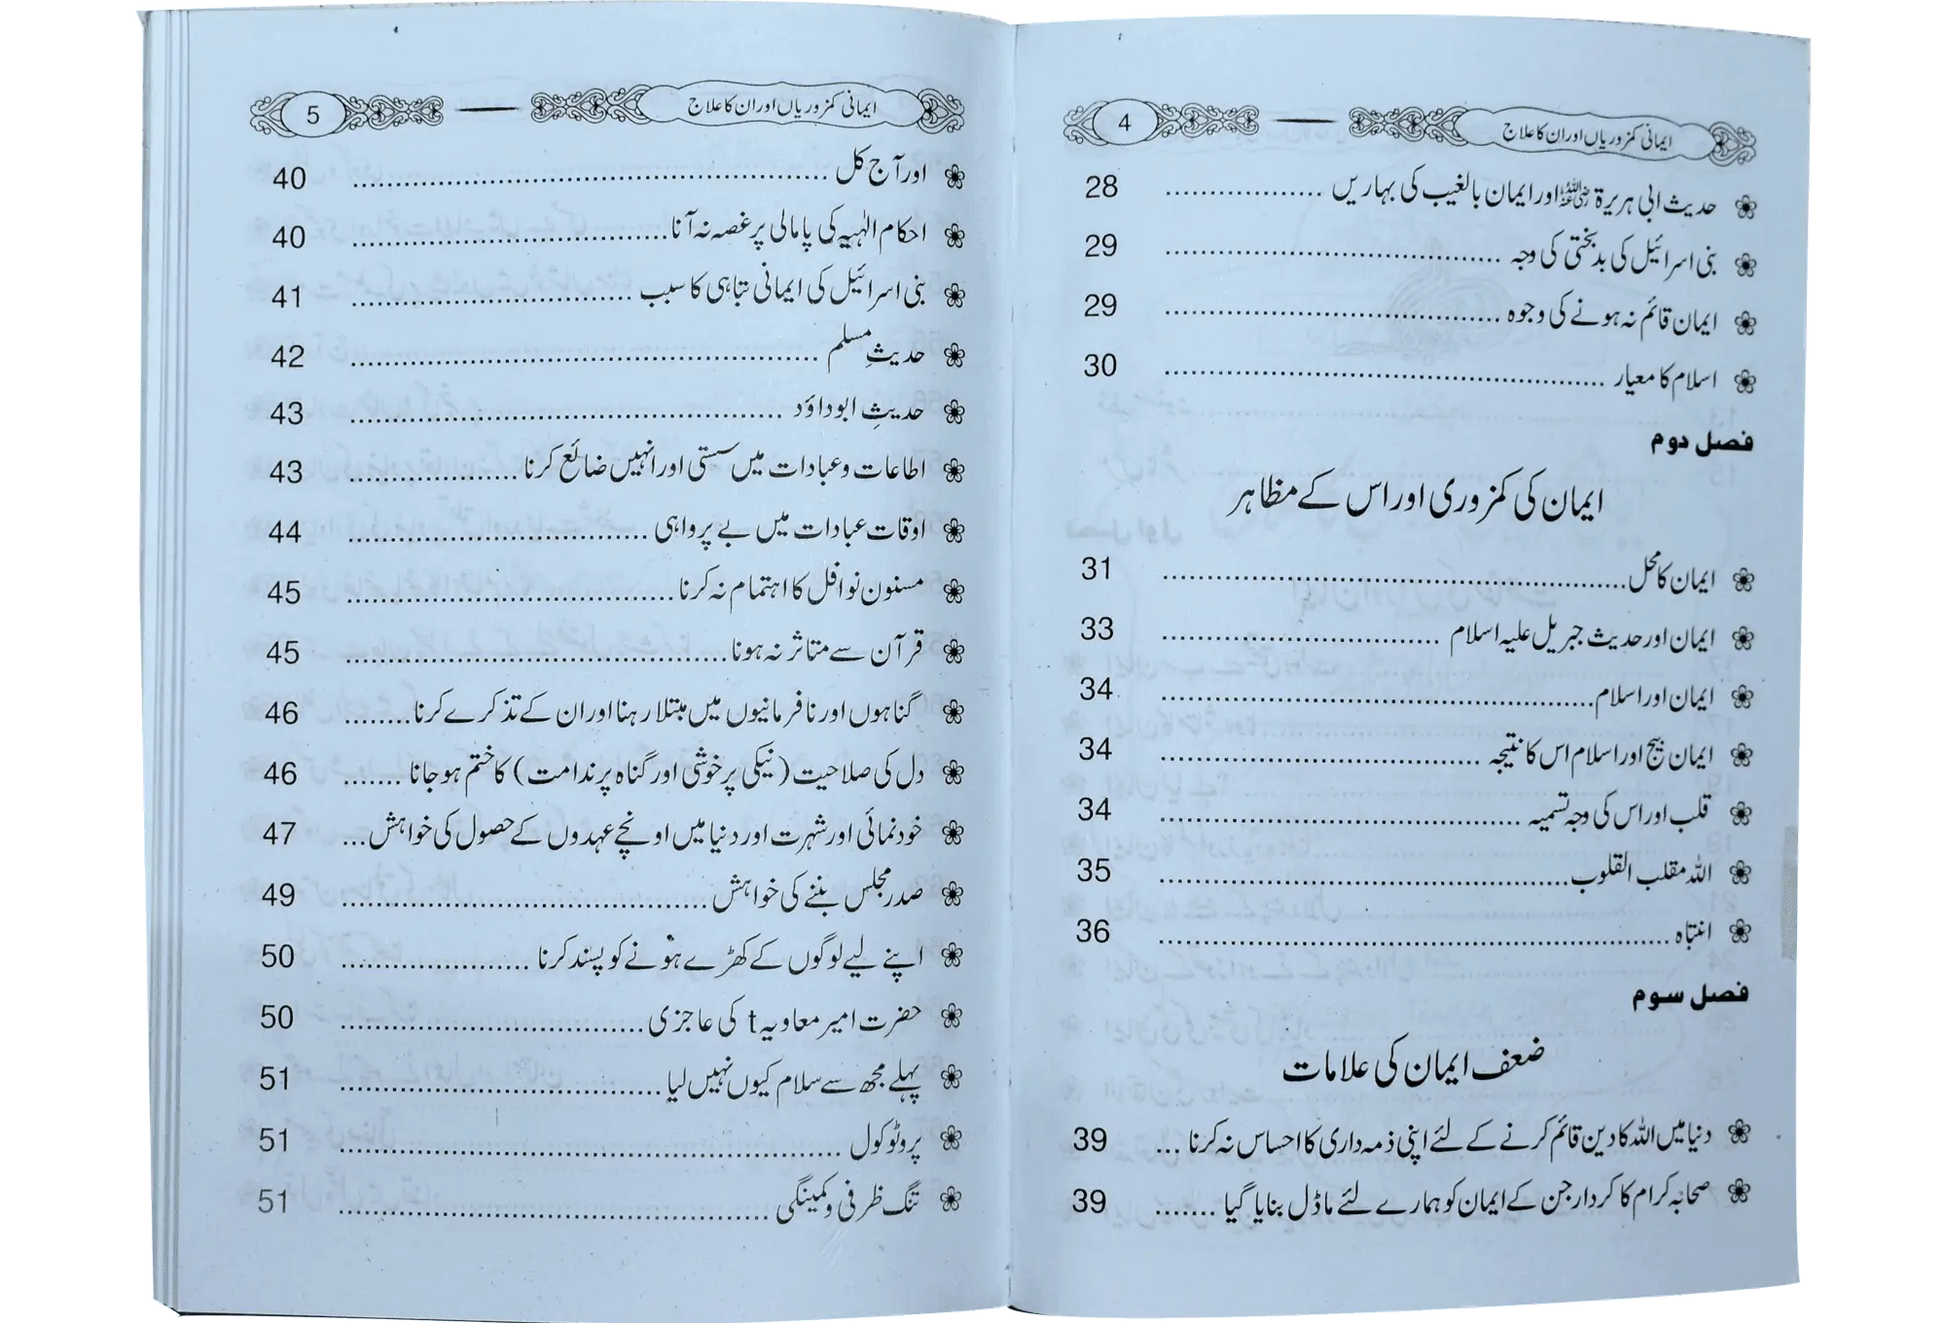 ایمانی کمزوریاں اور ان کا علاج 4
حدیث ابی ہریرۃ رضی اللہ عنہ اور ایمان بالغیب کی بہاریں ........ 28
بنی اسرائیل کی بدبختی کی وجہ ........ 29
ایمان قائم نہ ہونے کی وجوہ ........ 29
اسلام کا معیار ........ 30
فصل دوم
ایمان کی کمزوری اور اس کے مظاہر
ایمان کا محل ........ 31
ایمان اور حدیث جبریل علیہ اسلام ........ 33
ایمان اور اسلام ........ 34
ایمان بیج اور اسلام اس کا نتیجہ ........ 34
قلب اور اس کی وجہ تسمیہ ........ 34
اللہ مقلب القلوب ........ 35
انتباہ ........ 36
فصل سوم
ضعف ایمان کی علامات
دنیا میں اللہ کا دین قائم کرنے کے لئے اپنی ذمہ داری کا احساس نہ کرنا ... 39
صحابہ کرام کا کردار جن کے ایمان کو ہمارے لئے ماڈل بنایا گیا ....... 39
ایمانی کمزوریاں اور ان کا علاج 5
اور آج کل ........ 40
احکام الٰہیہ کی پامالی پر غصہ نہ آنا ........ 40
بنی اسرائیل کی ایمانی تباہی کا سبب ........ 41
حدیثِ مسلم ........ 42
حدیثِ ابوداؤد ........ 43
اطاعات و عبادات میں سستی اور انہیں ضائع کرنا ........ 43
اوقات عبادات میں بے پرواہی ........ 44
مسنون نوافل کا اہتمام نہ کرنا ........ 45
قرآن سے متاثر نہ ہونا ........ 45
گناہوں اور نافرمانیوں میں مبتلا رہنا اور ان کے تذکرے کرنا ........ 46
دل کی صلاحیت (نیکی پر خوشی اور گناہ پر ندامت) کا ختم ہو جانا ....... 46
خودنمائی اور شہرت اور دنیا میں اونچے عہدوں کے حصول کی خواہش ... 47
صدر مجلس بننے کی خواہش ........ 49
اپنے لیے لوگوں کے کھڑے ہونے کو پسند کرنا ........ 50
حضرت امیر معاویہ t کی عاجزی ........ 50
پہلے مجھ سے سلام کیوں نہیں لیا ........ 51
پروٹوکول ........ 51
تنگ ظرفی و کمینگی ........ 51